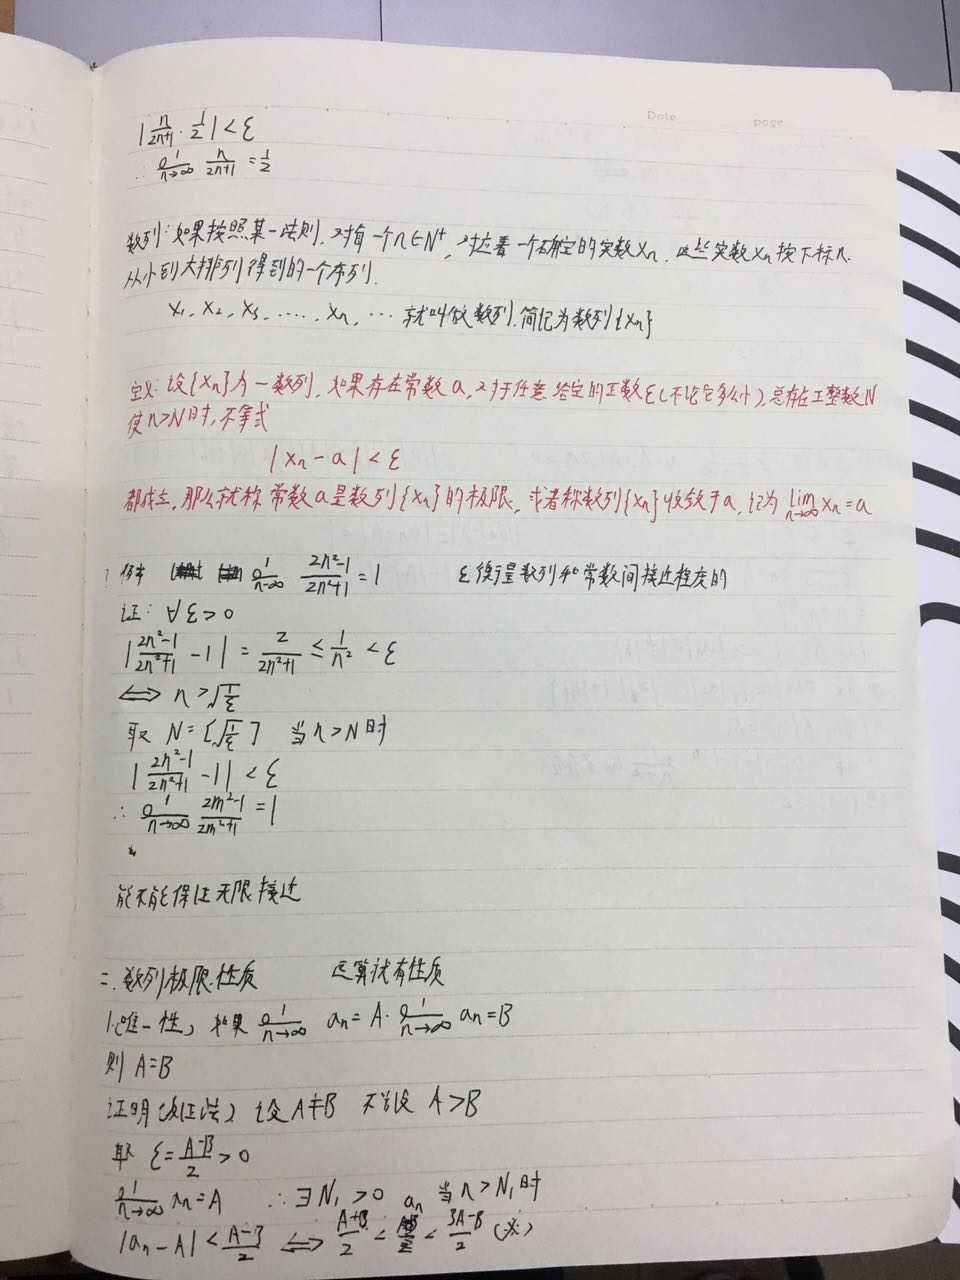 Date Dose
|n/2n+1 · 1/2| < ε
∴ lim n→∞ n/2n+1 = 1/2
数列:如果按照某一法则,对有一个n∈N⁺,对应着一个确定的实数Xn,这些实数Xn按下标n
从小到大排列得到的一个序列.
X₁, X₂, X₃, ....., Xn, ... 就叫做数列,简记为数列{Xn}
定义:设{Xn}为一数列,如果存在常数a,对于任意给定的正数ε(不论它多么小),总存在正整数N
使n>N时,不等式
|Xn - a| < ε
都成立,那么就称常数a是数列{Xn}的极限,或者称数列{Xn}收敛于a,记为 lim n→∞ Xn = a
例 lim n→∞ 2n²-1/2n²+1 = 1 ε衡量数列和常数间接近程度的
证: ∀ε>0
|2n²-1/2n²+1 - 1| = 2/2n²+1 ≤ 1/n² < ε
⟺ n > √1/ε
取 N = [√1/ε] 当n>N时
|2n²-1/2n²+1 - 1| < ε
∴ lim n→∞ 2n²-1/2n²+1 = 1
能不能保证无限接近
二.数列极限性质 运算就有性质
1.(唯一性) 如果 lim n→∞ an = A · lim n→∞ an = B
则 A=B
证明(反证法) 设A≠B 不当设 A>B
取 ε = A-B/2 > 0
lim n→∞ an = A ∴ ∃N₁>0 当n>N₁时
|an - A| < A-B/2 ⟺ A+B/2 < an < 3A-B/2 (※)